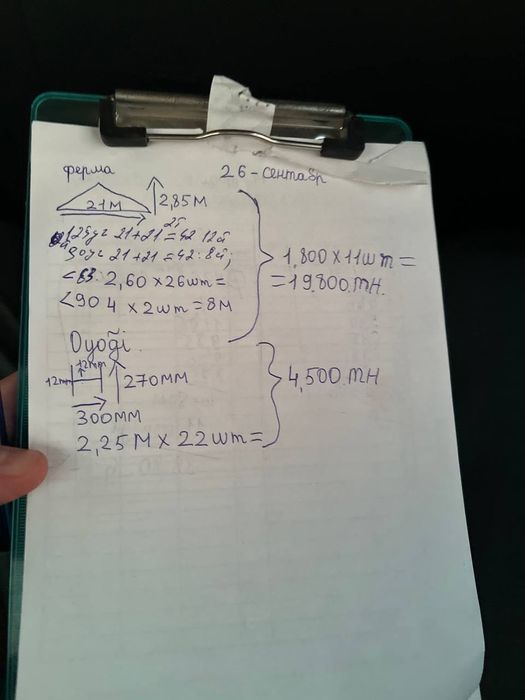 ферма
26-сентабр
21М
2,85М
125уг 21+21=42 12й
90уг 21+21=42:8й;
<63 2,60 x 26шт=
<90 4 x 2шт=8М
1,800 x 11шт=
=19,800.тн.
12mm
12mm
270мм
300мм
2,25 М x 22шт=
4,500.тн